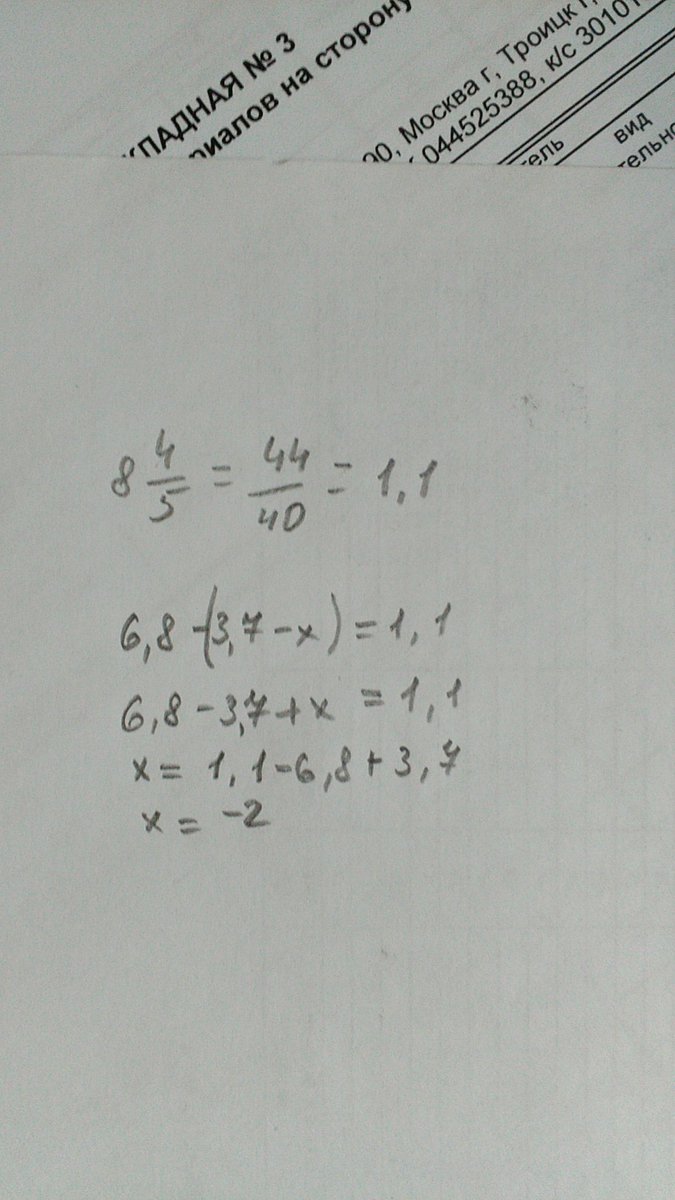 КЛАДНАЯ № 3
риалов на сторону
00, Москва г, Троицк г,
044525388, к/с 30101
тель
вид
тельно
8 4/5 = 44/40 = 1,1
6,8 - (3,7 - x) = 1,1
6,8 - 3,7 + x = 1,1
x = 1,1 - 6,8 + 3,7
x = -2